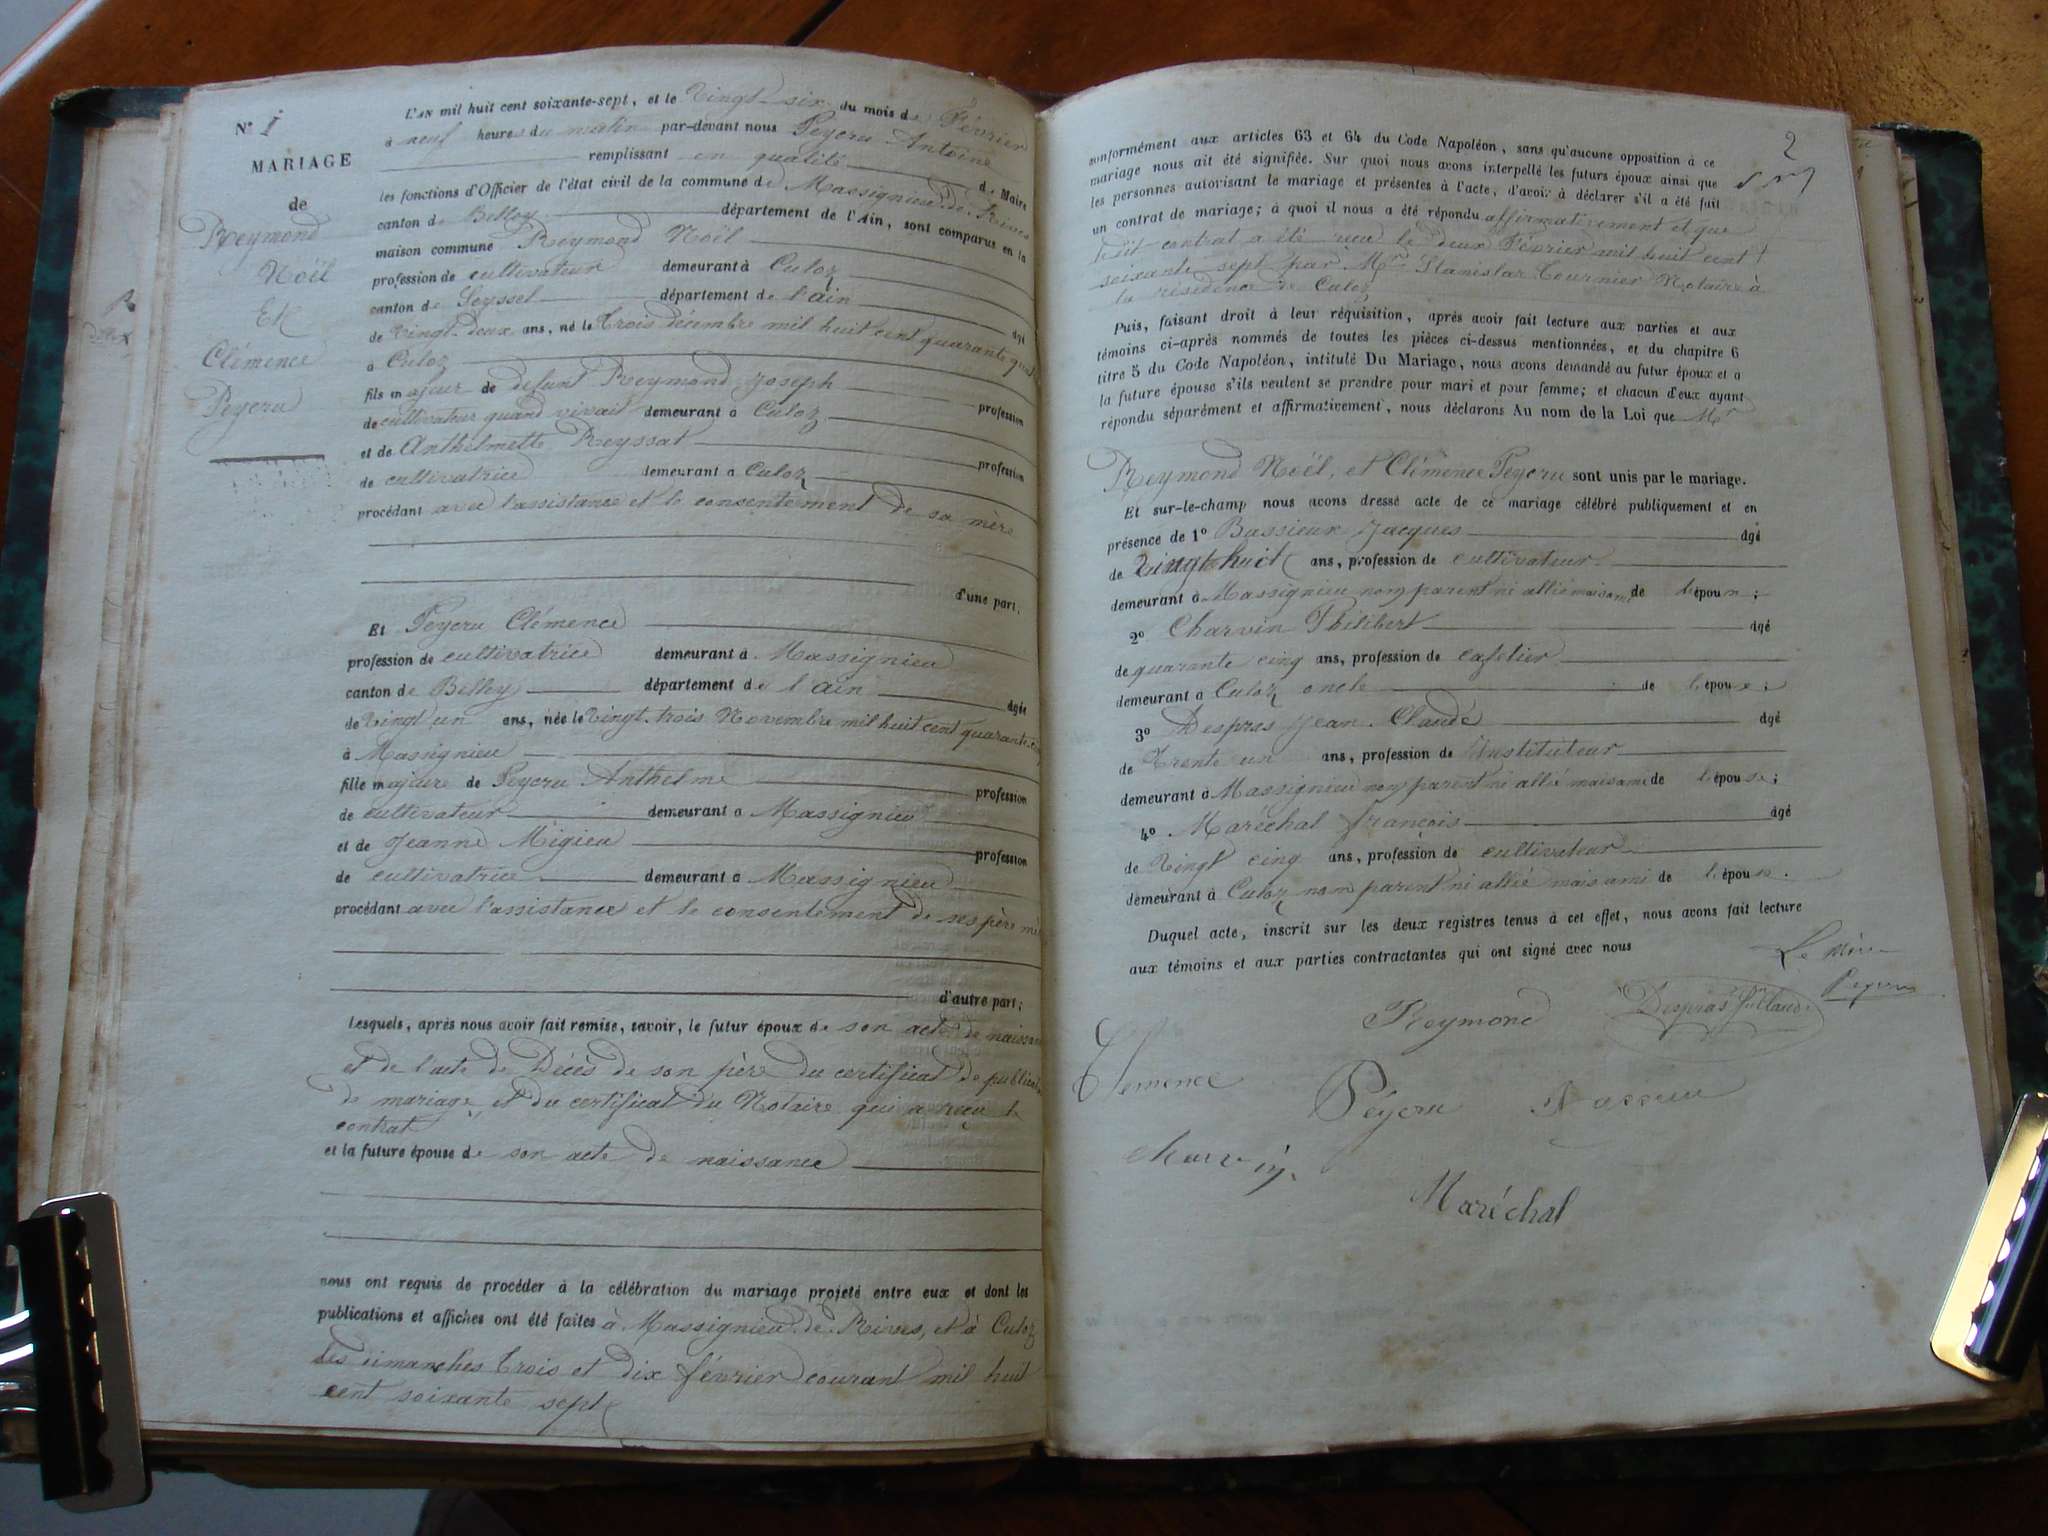 N° 1
MARIAGE
de
Reymond
Noël
Et
Clémence
Peycru
L'AN mil huit cent soixante-sept, et le Vingt-six du mois de Février
à neuf heures du matin par-devant nous Peycru Antoine
remplissant en qualité de Maire
les fonctions d'Officier de l'état civil de la commune de Massignieu-de-Rives
canton de Belley département de l'Ain, sont comparus en la
maison commune Reymond Noël
profession de cultivateur demeurant à Culoz
canton de Seyssel département de l'ain âgé
de Vingt-deux ans, né le Trois décembre mil huit cent quarante
à Culoz
fils majeur de défunt Reymond Joseph profession
de cultivateur quand vivait demeurant à Culoz
et de Anthelmette Reyssat profession
de cultivatrice demeurant à Culoz
procédant avec l'assistance et le consentement de sa mère
d'une part;
Et Peycru Clémence
profession de cultivatrice demeurant à Massignieu
canton de Belley département de l'ain âgée
de Vingt un ans, née le Vingt-trois Novembre mil huit cent quarante-cinq
à Massignieu
fille majeure de Peycru Anthelme profession
de cultivateur demeurant à Massignieu
et de Jeanne Migieu profession
de cultivatrice demeurant à Massignieu
procédant avec l'assistance et le consentement de ses père
d'autre part;
Lesquels, après nous avoir fait remise, savoir, le futur époux de son acte de naissance
et de l'acte de Décès de son père du certificat de
de mariage et du certificat du Notaire qui a reçu le
contrat
et la future épouse de son acte de naissance
nous ont requis de procéder à la célébration du mariage projeté entre eux et dont les
publications et affiches ont été faites à Massignieu-de-Rives, et à Culoz
les dimanches Trois et dix février courant mil huit
cent soixante sept
2
conformément aux articles 63 et 64 du Code Napoléon, sans qu'aucune opposition à ce
mariage nous ait été signifiée. Sur quoi nous avons interpellé les futurs époux ainsi que
les personnes autorisant le mariage et présentes à l'acte, d'avoir à déclarer s'il a été fait
un contrat de mariage; à quoi il nous a été répondu affirmativement et que
ledit contrat a été reçu le deux Février mil huit cent
soixante sept par Stanislas Tournier Notaire à
la résidence de Culoz
Puis, faisant droit à leur réquisition, après avoir fait lecture aux parties et aux
témoins ci-après nommés de toutes les pièces ci-dessus mentionnées, et du chapitre 6
titre 5 du Code Napoléon, intitulé Du Mariage, nous avons demandé au futur époux et à
la future épouse s'ils veulent se prendre pour mari et pour femme; et chacun d'eux ayant
répondu séparément et affirmativement, nous déclarons Au nom de la Loi que Mr
Reymond Noël, et Clémence Peycru sont unis par le mariage.
Et sur-le-champ nous avons dressé acte de ce mariage célébré publiquement et en
présence de 1° Bassieux Jacques âgé
de Vingt huit ans, profession de cultivateur
demeurant à Massignieu non parent ni allié mais ami de l'époux;
2° Charvin Philibert âgé
de quarante cinq ans, profession de cafetier
demeurant à Culoz oncle de l'épou ;
3° Despras Jean-Claude âgé
de Trente un ans, profession de Instituteur
demeurant à Massignieu non parent ni allié mais ami de l'épouse;
4° Maréchal françois âgé
de Vingt cinq ans, profession de cultivateur
demeurant à Culoz non parent ni allié mais ami de l'époux.
Duquel acte, inscrit sur les deux registres tenus à cet effet, nous avons fait lecture
aux témoins et aux parties contractantes qui ont signé avec nous
Le Mire
Peycru
Reymond
Despras Claude
Clemence
Péycru
Bassieu
charvin
Maréchal